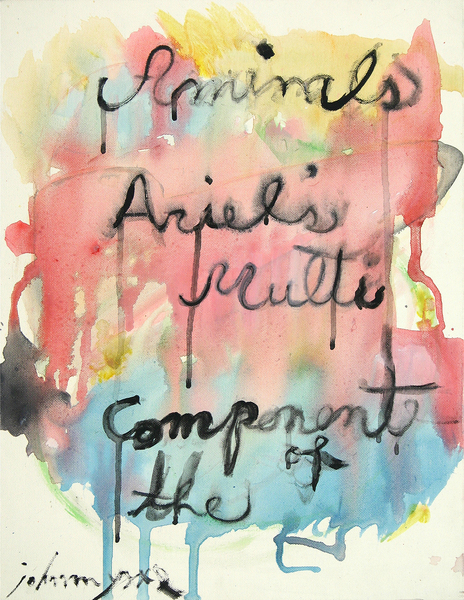 Aminals
Ariel's
Multi
Component
of
the